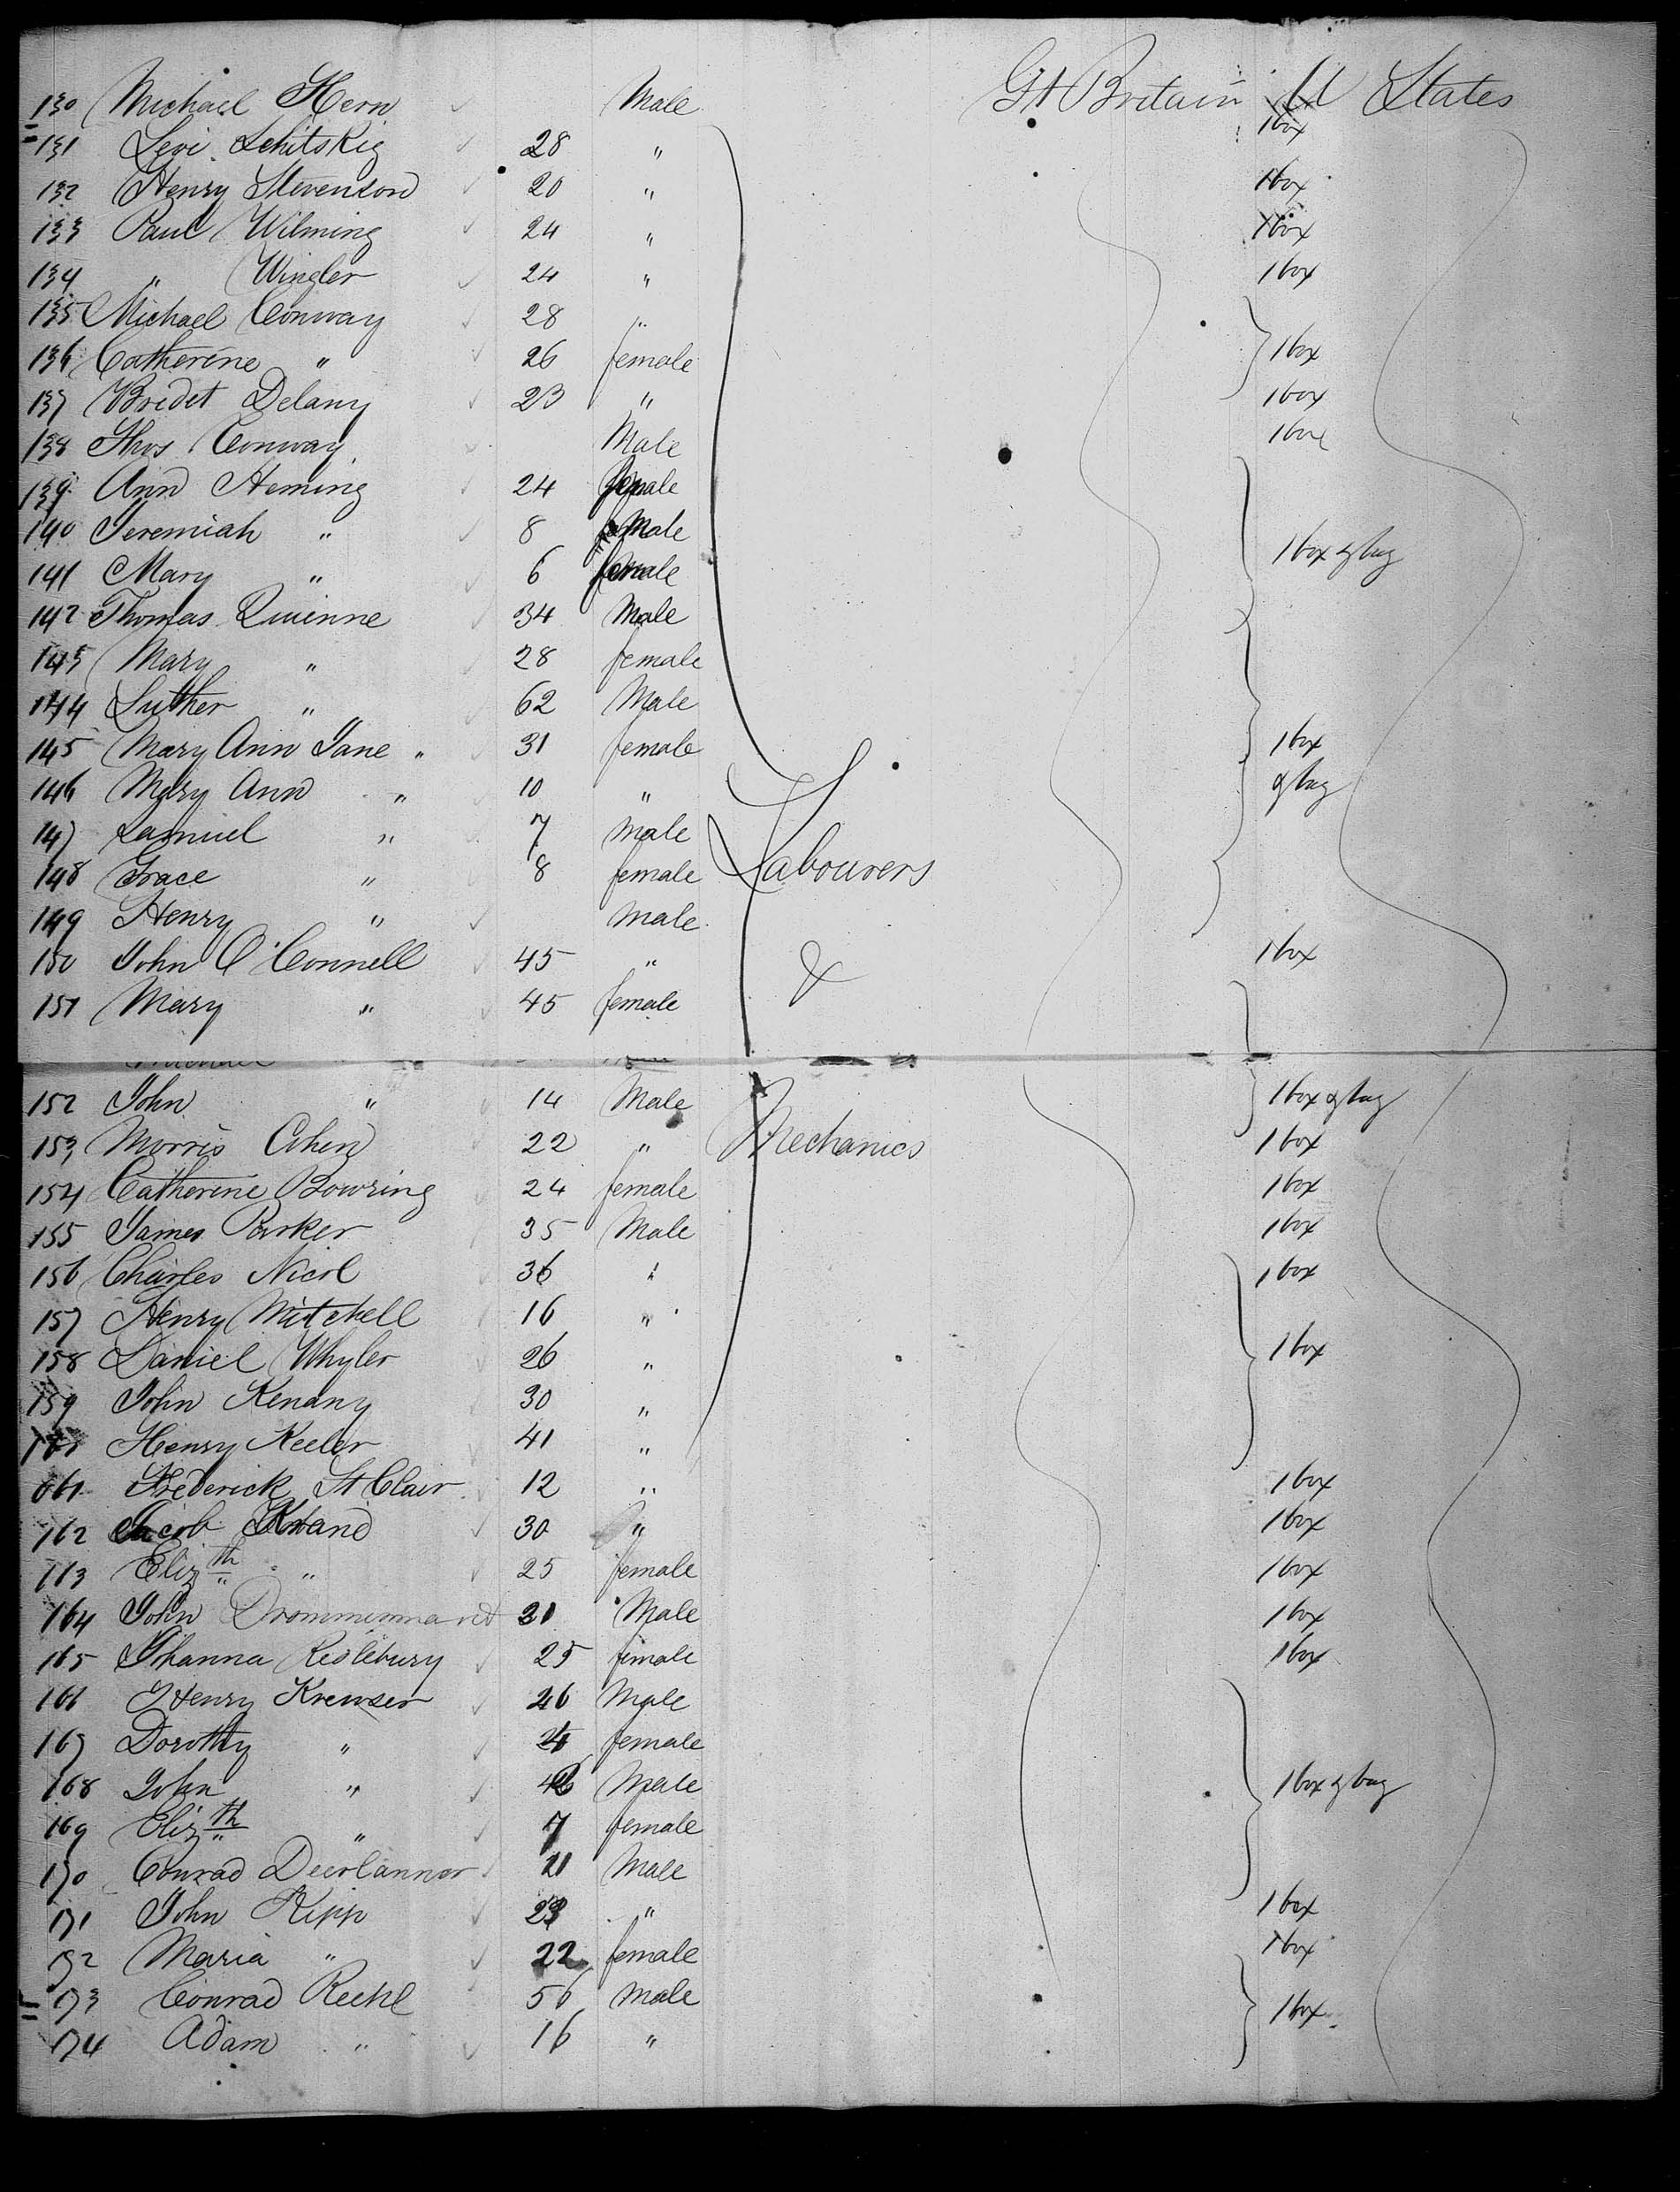 130 Michael Hern Male Gt Britain U States
131 Levi Schitskig 28 " 1 box
132 Henry Stevenson 20 " 1 box
133 Paul Wilming 24 " 1 box
134 " Wingler 24 " 1 box
135 Michael Conway 28 "
136 Catherine " 26 female 1 box
137 Bridet Delany 23 " 1 box
138 Thos Conway Male 1 box
139 Ann Heming 24 female
140 Jeremiah " 8 Male
141 Mary " 6 female 1 box & bag
142 Thomas Quinne 34 Male
143 Mary " 28 female
144 Luther " 62 Male
145 Mary Ann Jane " 31 female 1 box
146 Mary Ann " 10 " & bag
147 Samuel " 7 Male
148 Grace " 8 female Labourers
149 Henry " Male
150 John O'Connell 45 " & 1 box
151 Mary " 45 female
Michael
152 John " 14 Male 1 box & bag
153 Morris Cohen 22 " Mechanics 1 box
154 Catherine Bowring 24 female 1 box
155 James Parker 35 Male 1 box
156 Charles Nicol 36 " 1 box
157 Henry Mitchell 16 "
158 Daniel Whyler 26 " 1 box
159 John Kenany 30 "
Henry Keeler 41 "
161 Frederick St Clair 12 " 1 box
162 Jacob 30 " 1 box
163 Elizth " 25 female 1 box
164 John 31 Male 1 box
165 Johanna Reslebury 25 female 1 box
166 Henry Krewser 26 Male
167 Dorothy " female
168 John " Male 1 box & bag
169 Elizth " 7 female
170 Conrad Deerlannor 21 Male
171 John Kipp 23 " 1 box
172 Maria " 22 female 1 box
173 Conrad Reehl 56 Male
174 Adam " 16 " 1 box